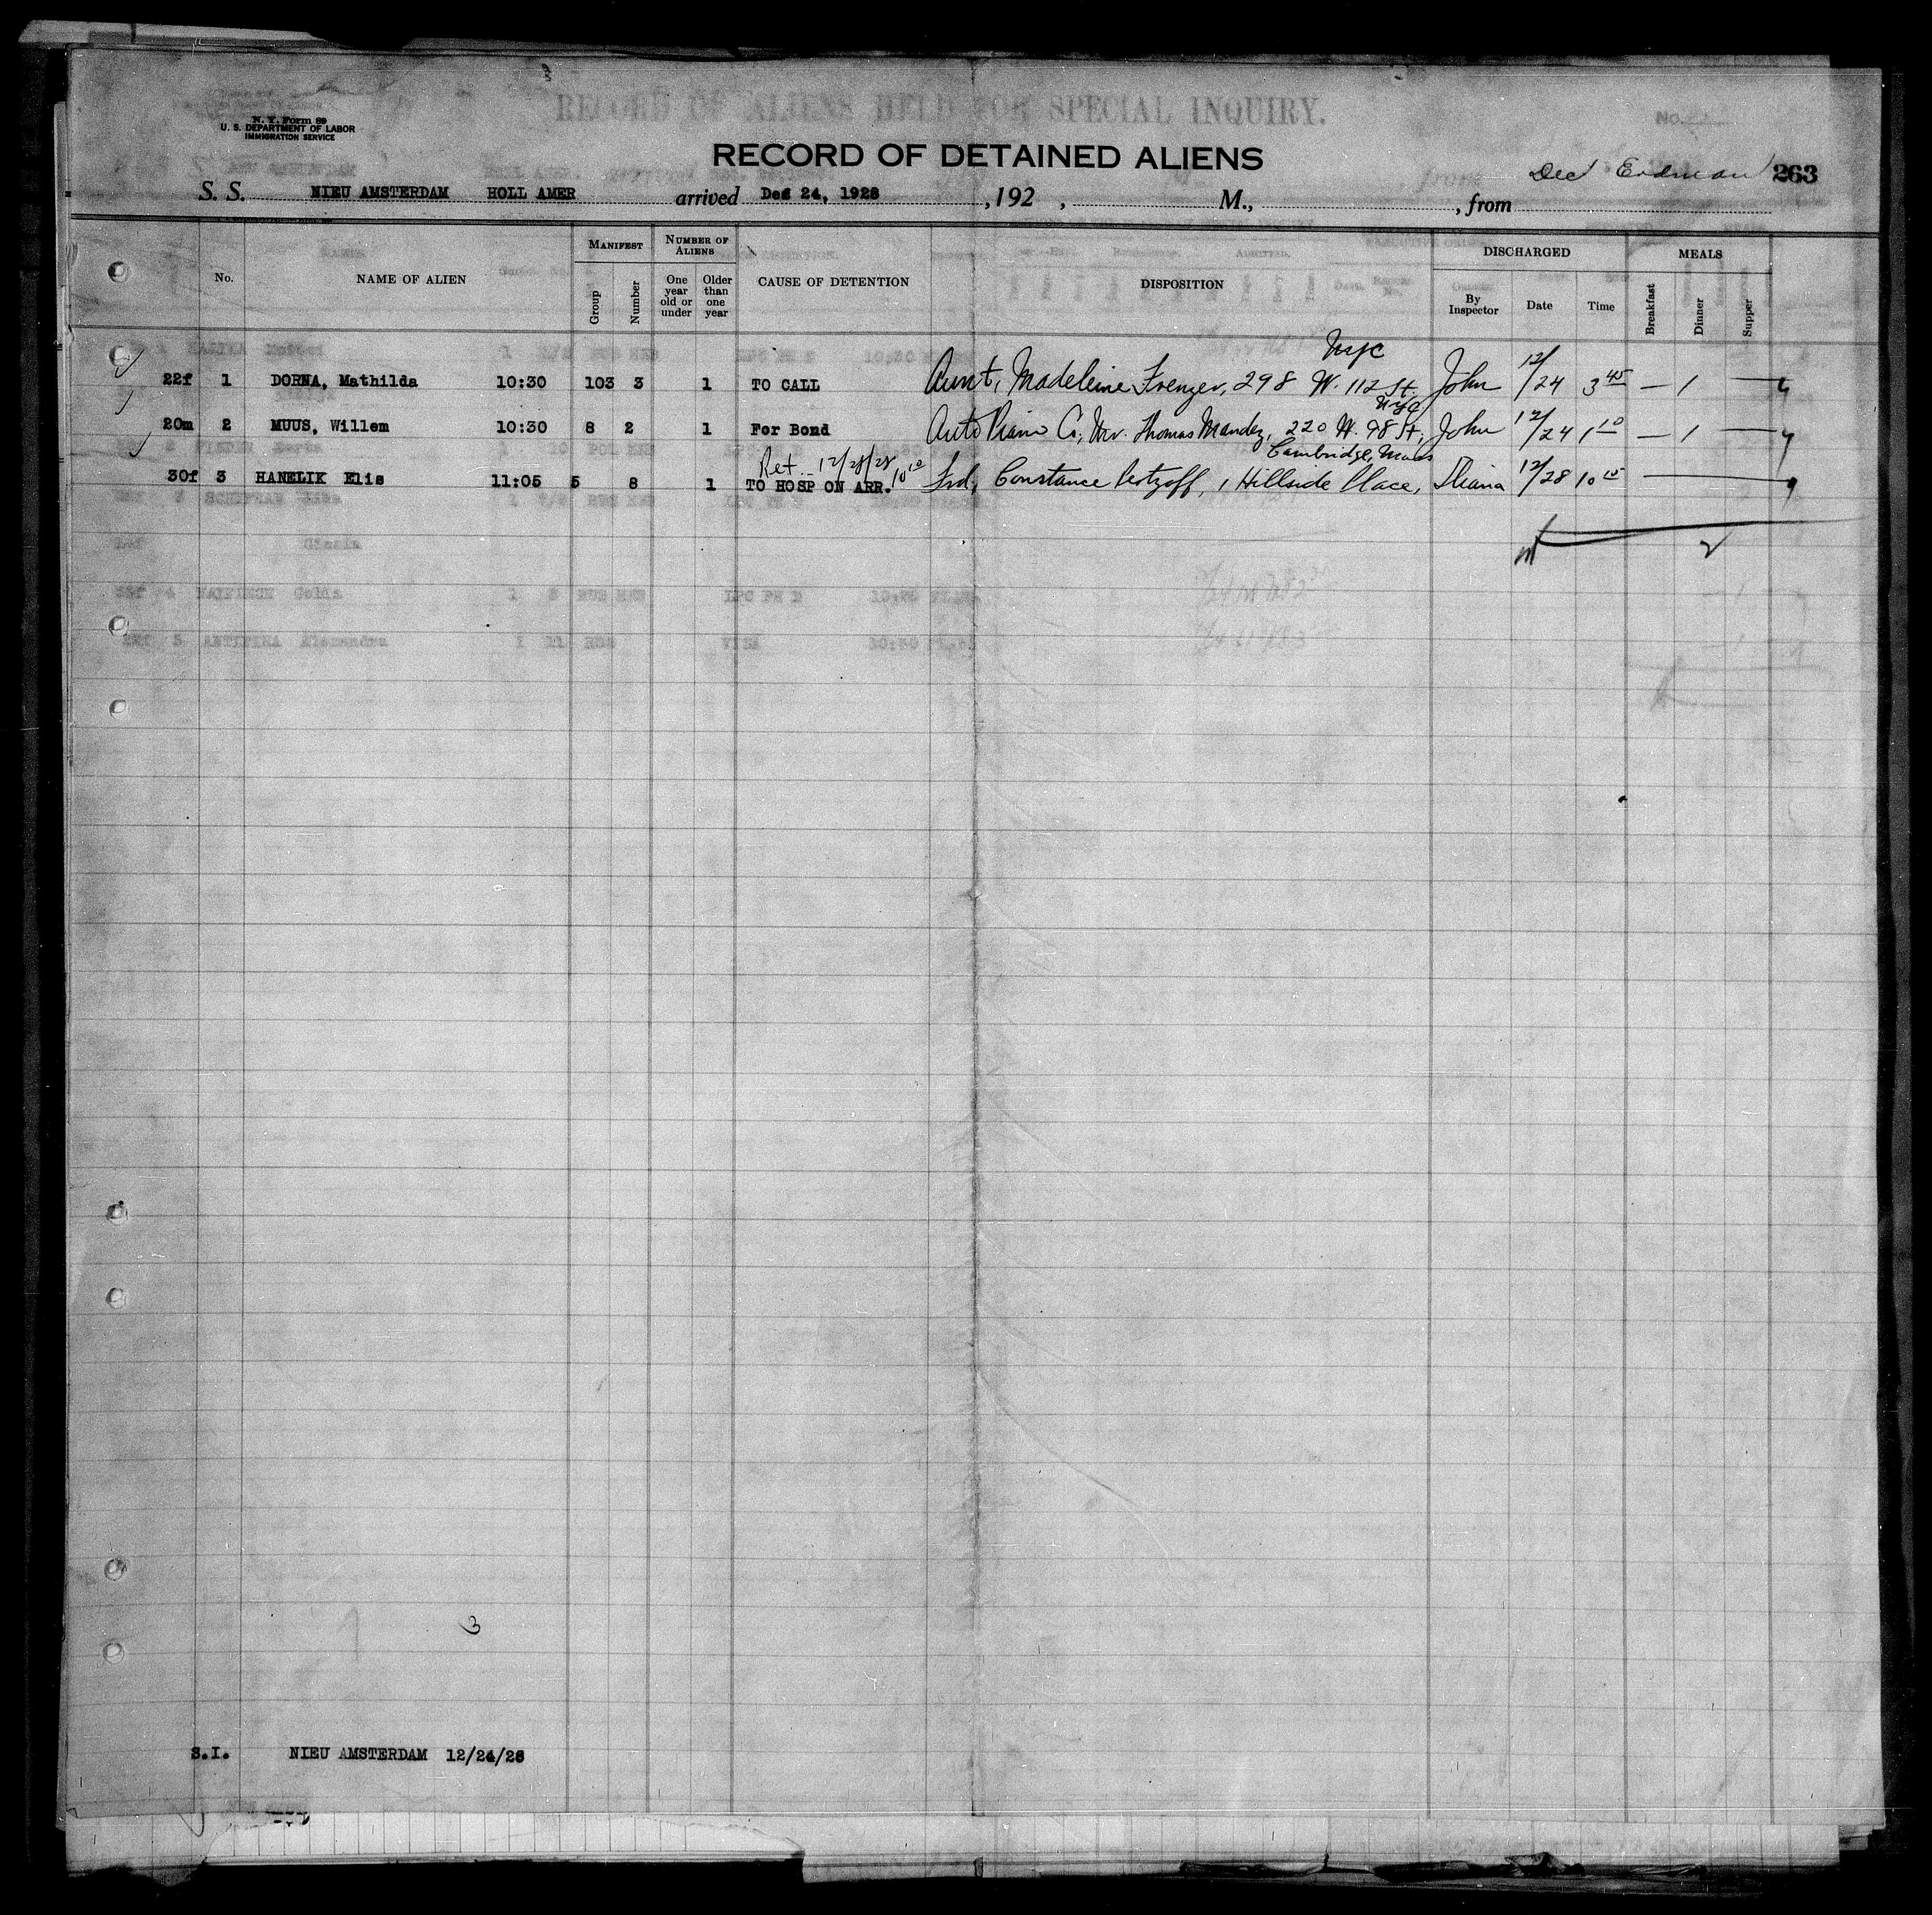 RECORD OF ALIENS HELD FOR SPECIAL INQUIRY.
N. Y. Form 89
U. S. DEPARTMENT OF LABOR
IMMIGRATION SERVICE
RECORD OF DETAINED ALIENS
Erdman 263
S. S. NIEU AMSTERDAM HOLL AMER arrived Dec 24, 1928 , 192 , M., , from
MANIFEST NUMBER OF ALIENS DISCHARGED MEALS
No. NAME OF ALIEN Group Number One year old or under Older than one year CAUSE OF DETENTION DISPOSITION By Inspector Date Time Breakfast Dinner Supper
NYC
22f 1 DORNA, Mathilda 10:30 103 3 1 TO CALL Aunt, Madeleine Frenger, 298 W. 112 St. John 12/24 3 45 — 1 —
NYC
20m 2 MUUS, Willem 10:30 8 2 1 For Bond Auto Piano Co, Mr. Thomas Mandez, 220 W. 98 St, John 12/24 1 10 — 1 —
Ret. 12/28/28 10 10 Cambridge, Mass
30f 3 HANELIK Elis 11:05 5 8 1 TO HOSP ON ARR. Frd, Constance 1 Hillside Place, 12/28 10 15 —
2
3
S.I. NIEU AMSTERDAM 12/24/28